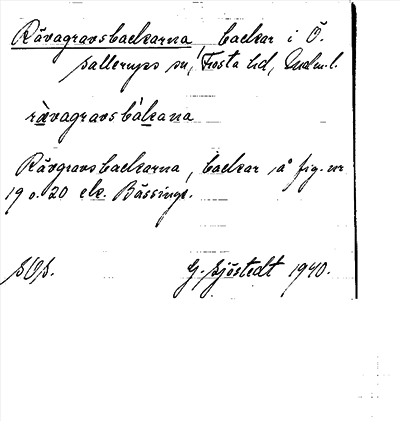 Rävagravsbackarna, backar i Ö.
Sallerups sn, Frosta hd, Malm.l.
rävagravsbàkana
Rävgravsbackarna, backar å fig. nr
19 o. 20 ek. Bässinge.
SOS.
G. Sjöstedt 1940.